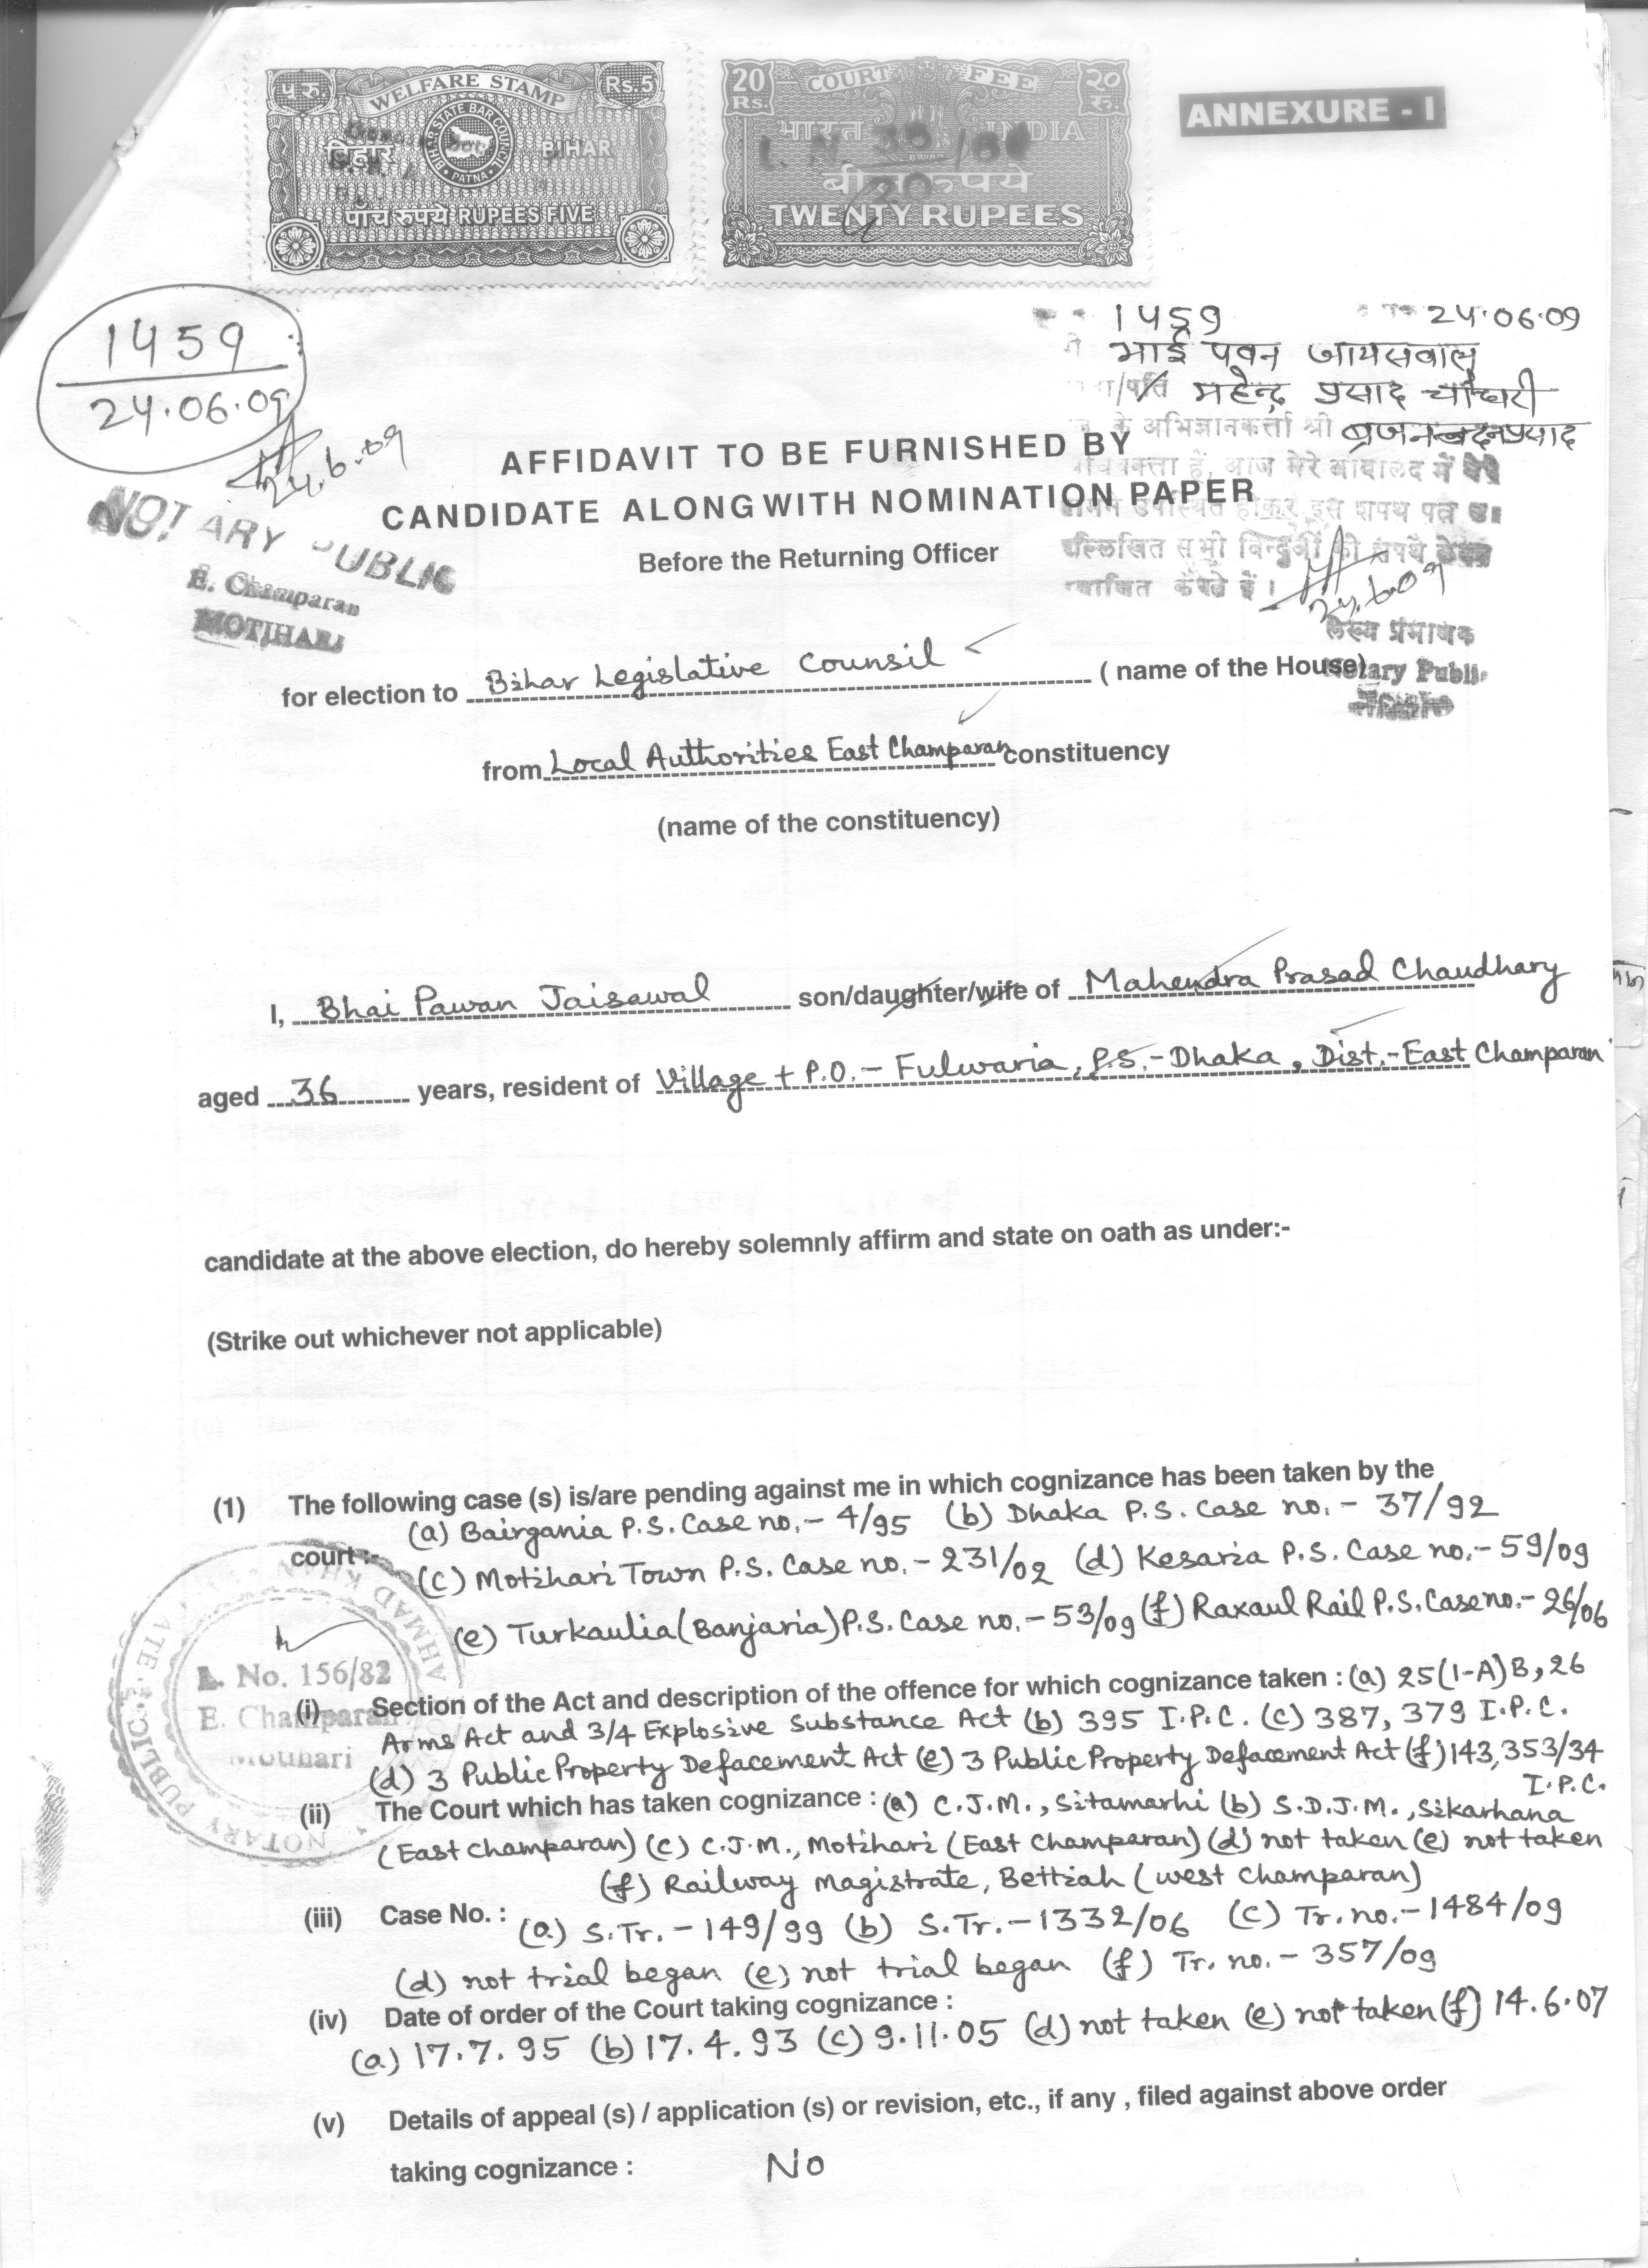 ५ रु. WELFARE STAMP Rs.5
BIHAR STATE BAR COUNCIL
PATNA
बिहार BIHAR
पांच रुपये RUPEES FIVE
20 Rs. COURT FEE २० रु.
भारत INDIA
बीस रुपये
TWENTY RUPEES
ANNEXURE - I
1459
24.06.09
24.6.09
NOTARY PUBLIC
E. Champaran
MOTIHARI
1459 24.06.09
भाई पवन जायसवाल
/पति महेन्द्र प्रसाद चौधरी
के अभिज्ञानकर्त्ता श्री ब्रजनन्दन प्रसाद
हैं, आज मेरे कार्यालय में
उपस्थित होकर इस शपथ पत्र
उल्लिखित सभी बिन्दुओं की शपथ लेकर
24.6.09
लेख्य प्रमाणक
Notary Public
AFFIDAVIT TO BE FURNISHED BY
CANDIDATE ALONG WITH NOMINATION PAPER
Before the Returning Officer
for election to Bihar Legislative Counsil ( name of the House)
from Local Authorities East Champaran constituency
(name of the constituency)
I, Bhai Pawan Jaisawal son/daughter/wife of Mahendra Prasad Chaudhary
aged 36 years, resident of Village + P.O.- Fulwaria, P.S.-Dhaka, Dist.-East Champaran
candidate at the above election, do hereby solemnly affirm and state on oath as under:-
(Strike out whichever not applicable)
(1) The following case (s) is/are pending against me in which cognizance has been taken by the
court:- (a) Bairgania P.S. Case no.- 4/95 (b) Dhaka P.S. Case no.- 37/92
(c) Motihari Town P.S. Case no.- 231/02 (d) Kesaria P.S. Case no.- 59/09
(e) Turkaulia (Banjaria) P.S. Case no.- 53/09 (f) Raxaul Rail P.S. Case no.- 26/06
(i) Section of the Act and description of the offence for which cognizance taken : (a) 25(1-A)B, 26
Arms Act and 3/4 Explosive Substance Act (b) 395 I.P.C. (c) 387, 379 I.P.C.
(d) 3 Public Property Defacement Act (e) 3 Public Property Defacement Act (f) 143, 353/34
I.P.C.
(ii) The Court which has taken cognizance : (a) C.J.M., Sitamarhi (b) S.D.J.M., Sikarhana
(East Champaran) (c) C.J.M., Motihari (East Champaran) (d) not taken (e) not taken
(f) Railway Magistrate, Bettiah (West Champaran)
(iii) Case No. : (a) S.Tr.- 149/99 (b) S.Tr.- 1332/06 (c) Tr. no.- 1484/09
(d) not trial began (e) not trial began (f) Tr. no.- 357/09
(iv) Date of order of the Court taking cognizance :
(a) 17.7.95 (b) 17.4.93 (c) 9.11.05 (d) not taken (e) not taken (f) 14.6.07
(v) Details of appeal (s) / application (s) or revision, etc., if any , filed against above order
taking cognizance : No
AHMAD KHAN
NOTARY PUBLIC
No. 156/82
E. Champaran
Motihari